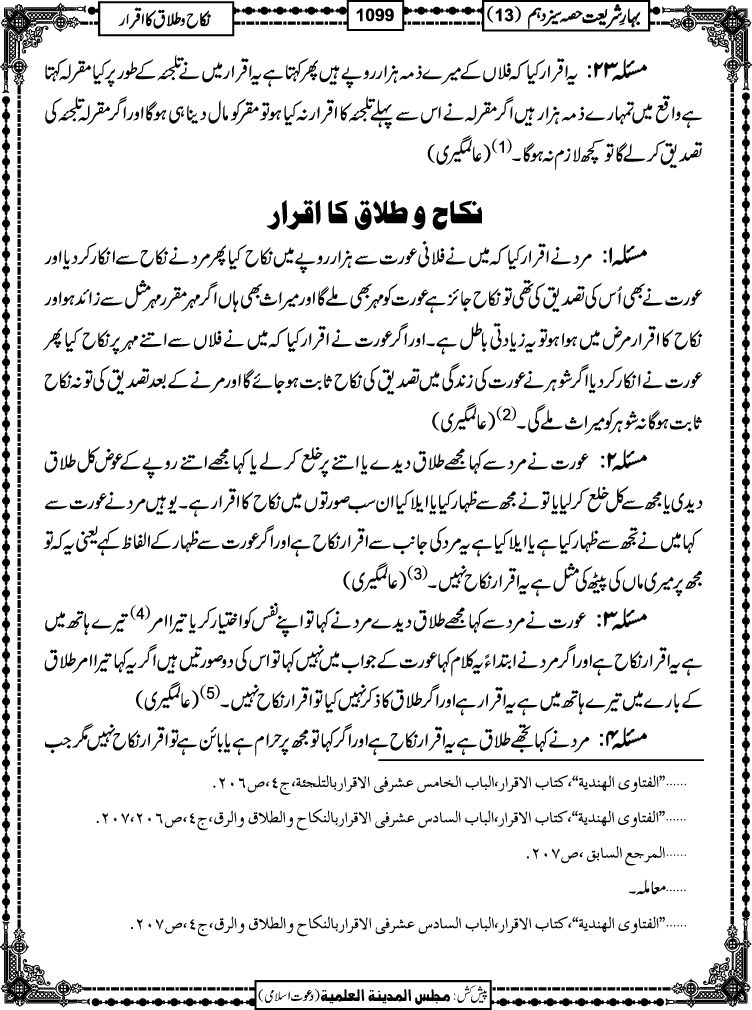 بہارِ شریعت حصہ سیزدہم (13)
1099
نکاح و طلاق کا اقرار
مسئلہ ۲۳: یہ اقرار کیا کہ فلاں کے میرے ذمہ ہزار روپے ہیں پھر کہتا ہے یہ اقرار میں نے تلجئہ کے طور پر کیا مقرلہ کہتا
ہے واقع میں تمہارے ذمہ ہزار ہیں اگر مقرلہ نے اس سے پہلے تلجئہ کا اقرار نہ کیا ہو تو مقر کو مال دینا ہی ہوگا اور اگر مقرلہ تلجئہ کی
تصدیق کر لے گا تو کچھ لازم نہ ہوگا۔(1) (عالمگیری)
نکاح و طلاق کا اقرار
مسئلہ ۱: مرد نے اقرار کیا کہ میں نے فلانی عورت سے ہزار روپے میں نکاح کیا پھر مرد نے نکاح سے انکار کر دیا اور
عورت نے بھی اُس کی تصدیق کی تھی تو نکاح جائز ہے عورت کو مہر بھی ملے گا اور میراث بھی ہاں اگر مہر مقرر مہر مثل سے زائد ہو اور
نکاح کا اقرار مرض میں ہوا ہو تو یہ زیادتی باطل ہے۔ اور اگر عورت نے اقرار کیا کہ میں نے فلاں سے اتنے مہر پر نکاح کیا پھر
عورت نے انکار کر دیا اگر شوہر نے عورت کی زندگی میں تصدیق کی نکاح ثابت ہو جائے گا اور مرنے کے بعد تصدیق کی تو نہ نکاح
ثابت ہوگا نہ شوہر کو میراث ملے گی۔(2) (عالمگیری)
مسئلہ ۲: عورت نے مرد سے کہا مجھے طلاق دیدے یا اتنے پر خلع کر لے یا کہا مجھے اتنے روپے کے عوض کل طلاق
دیدی یا مجھ سے کل خلع کر لیا یا تو نے مجھ سے ظہار کیا یا ایلا کیا ان سب صورتوں میں نکاح کا اقرار ہے۔ یوہیں مرد نے عورت سے
کہا میں نے تجھ سے ظہار کیا ہے یا ایلا کیا ہے یہ مرد کی جانب سے اقرارِ نکاح ہے اور اگر عورت سے ظہار کے الفاظ کہے یعنی یہ کہ تو
مجھ پر میری ماں کی پیٹھ کی مثل ہے یہ اقرار نکاح نہیں۔(3) (عالمگیری)
مسئلہ ۳: عورت نے مرد سے کہا مجھے طلاق دیدے مرد نے کہا تو اپنے نفس کو اختیار کر یا تیرا امر(4) تیرے ہاتھ میں
ہے یہ اقرار نکاح ہے اور اگر مرد نے ابتداءً یہ کلام کہا عورت کے جواب میں نہیں کہا تو اس کی دو صورتیں ہیں اگر یہ کہا تیرا امر طلاق
کے بارے میں تیرے ہاتھ میں ہے یہ اقرار ہے اور اگر طلاق کا ذکر نہیں کیا تو اقرار نکاح نہیں۔(5) (عالمگیری)
مسئلہ ۴: مرد نے کہا تجھے طلاق ہے یہ اقرار نکاح ہے اور اگر کہا تو مجھ پر حرام ہے یا بائن ہے تو اقرار نکاح نہیں مگر جب
......"الفتاوى الهندية"،كتاب الاقرار،الباب الخامس عشر فى الاقرار بالتلجئة،ج٤،ص٢٠٦.
......"الفتاوى الهندية"،كتاب الاقرار،الباب السادس عشر فى الاقرار بالنكاح والطلاق والرق،ج٤،ص٢٠٦،٢٠٧.
......المرجع السابق،ص٢٠٧.
......معاملہ۔
......"الفتاوى الهندية"،كتاب الاقرار،الباب السادس عشر فى الاقرار بالنكاح والطلاق والرق،ج٤،ص٢٠٧.
پیش کش: مجلس المدینۃ العلمیۃ (دعوت اسلامی)